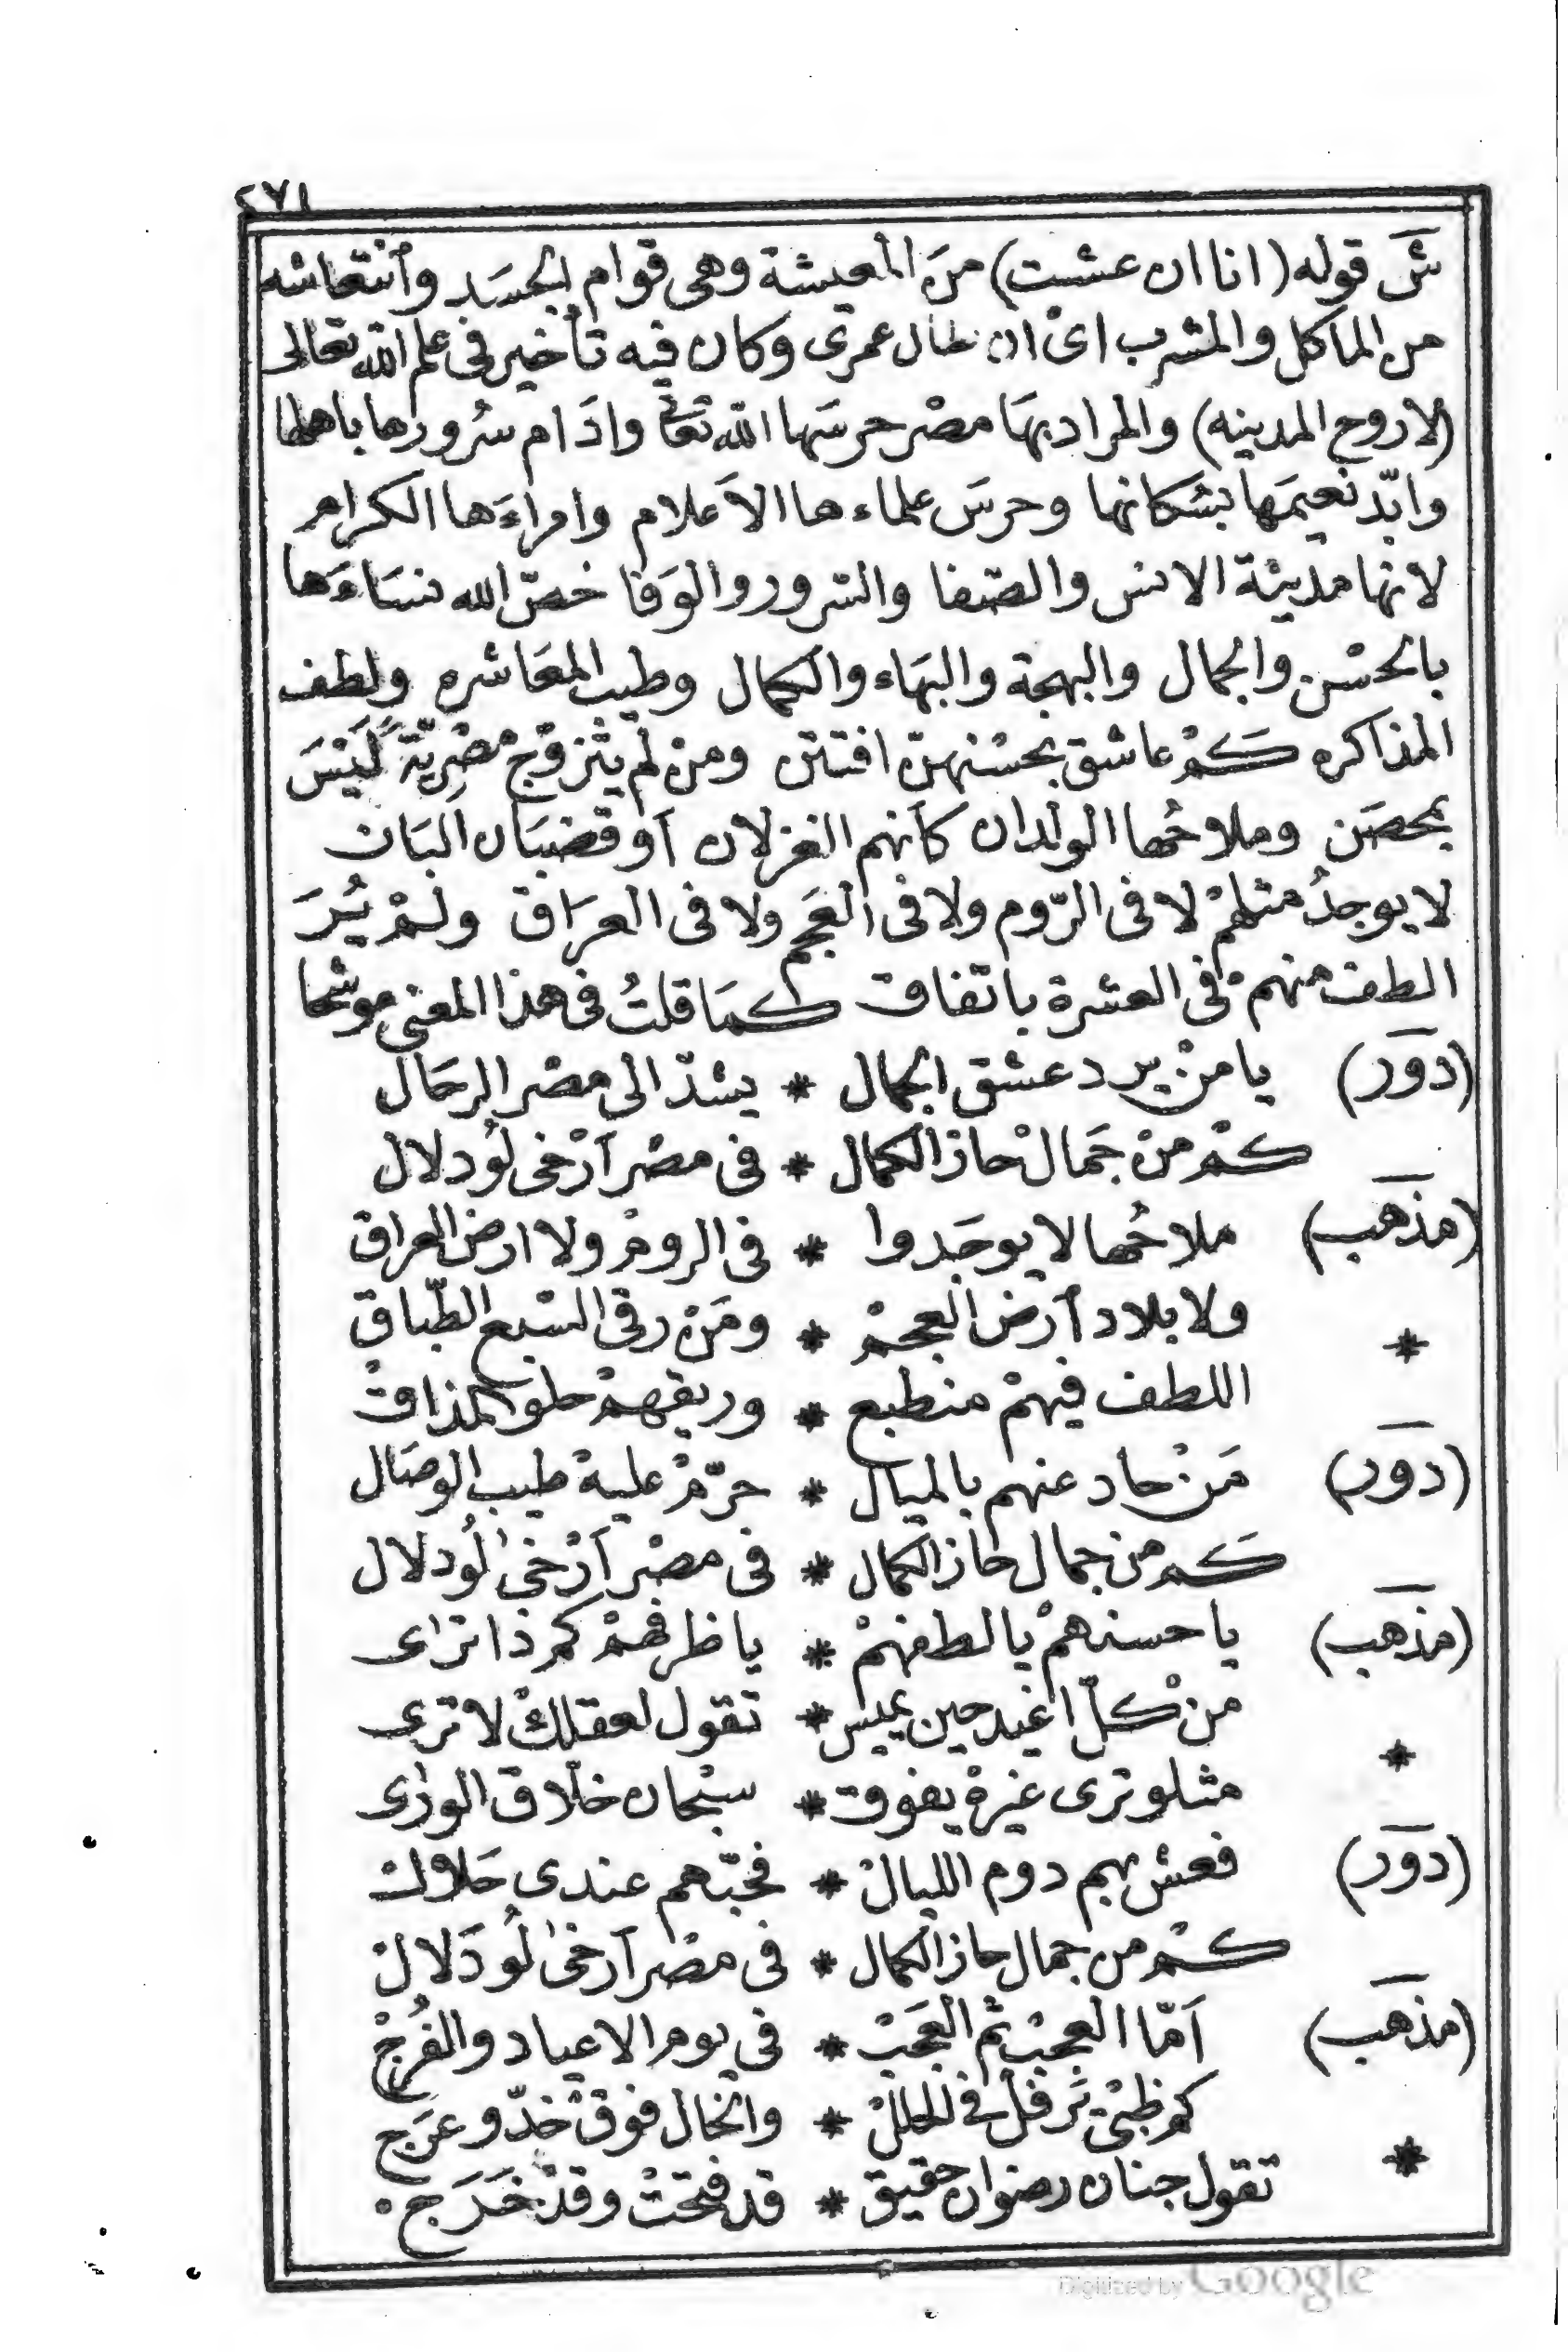 ٢٧١
شَ قوله (انا ان عشت) منَ المعيشة وهى قوام الجسَد وأنتعاشه
من الماكل والمشرب اىْ ان طال عمرى وكان فيه تأخير فى علم الله تعالى
(لاروح المدينه) والمراد بهَا مصْر حرسَها الله تعَا وادَام سُرورها باهلها
وابّد نعيمَها بسُكانها وحرسَ علماءها الاَعلام وامراءَها الكرام
لانها مدينة الانس والصّفا والسّرور والوَفا خصّ الله نسَاءَها
بالحسْن والجمال والبهجة والبهَاء والكمال وطيب المعَاشره ولطف
المذاكره كَمْ عاشق بحسْنهنّ افتتن ومنْ لمْ يتْزوّجْ مصْرِيّةً لَيْسَ
بمحصَن وملاحُها الولدان كأنهم الغزلان أو قضبَان البَان
لا يوجدُ مثلهمْ لا فى الرّوم ولا فى العَجم ولا فى العرَاق ولمْ يُرَ
الطف منهمْ فى العشرة باتفاق كمَا قلتُ فى هذا المعنى موشحا
(دَور) يا منْ يرد عشق الجمال * يشدّ الى مصْر الرحَال
كمْ منْ جَمالْ حاز الكمال * فى مصْر أرْخى لُو دلال
(مذهَب) ملاحُها لا يوجَدوا * فى الرومْ ولا ارض العراق
ولا بلاد أرض العجمْ * ومَنْ رقى السّبع الطّباقْ
* اللطف فيهمْ منطبع * وريقهمْ حلو المذاقْ
(دَور) مَنْ حاد عنهم بالميال * حرّمْ عليهْ طيب الوصَال
كَم من جمال حاز الكمال * فى مصْر أرْخىٰ لُو دلال
(مذهَب) يا حسنهمْ يا لطفهمْ * يا ظرفهمْ كم ذا ترٰى
منْ كلّ اغيد حين يميس * تقول لعقلكْ لا ترى
* مثلو ترى غيرهْ يفوق * سبْحان خلّاق الورٰى
(دَور) فعش بهم دوم الليالْ * فحبّهم عندى حَلالْ
كمْ من جمال حاز الكمال * فى مصْر أرخىٰ لُو دَلالْ
(مذهَب) أمّا العجبْ ثم العَجَبْ * فى يوم الاعياد والفُرجْ
كم ظبْىْ ترفل فى الحللْ * والخال فوق خدّو عرَج
* تقول جنان رضوان حقيق * قد فتحتْ وقدْ خَرَج
Digitized by Google